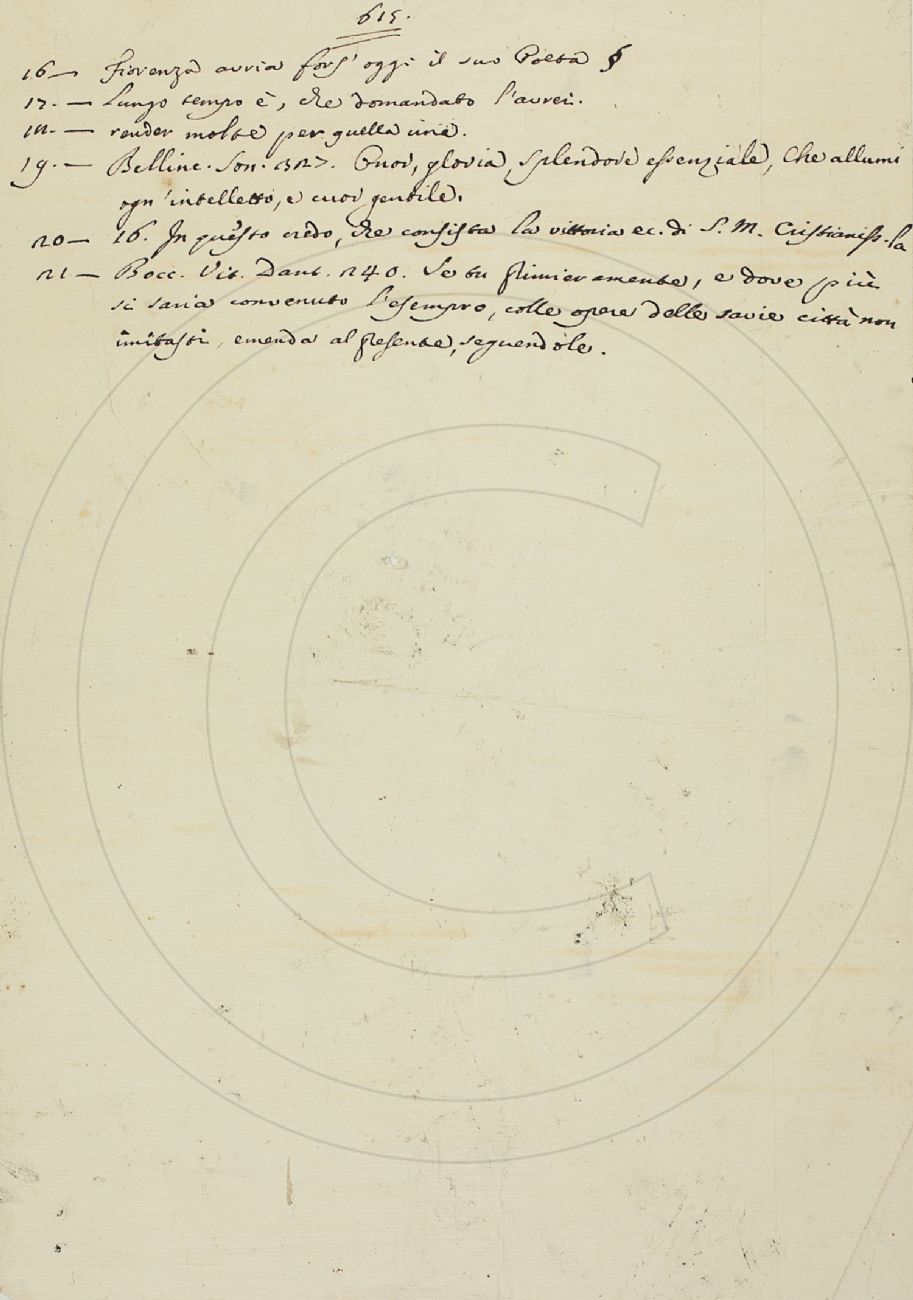 615.
16— Fiorenza avria fors' oggi il suo Poeta §
17.— Lungo tempo è, che domandato l'avrei.
18.— render molte per quella una.
19.— Bellinc. Son. 327. Onor, gloria, splendore essenziale, Che allumi
ogn'intelletto, e cuor gentile.
20— 16. In questo credo, che consista la vittoria ec. di S. M. Cristianiss. la
21— Bocc. Vit. Dant. 240. Se tu primieramente, e dove più
si saria convenuto l'esempro, colle opere delle savie città non
imitasti, emenda al presente, seguendole.